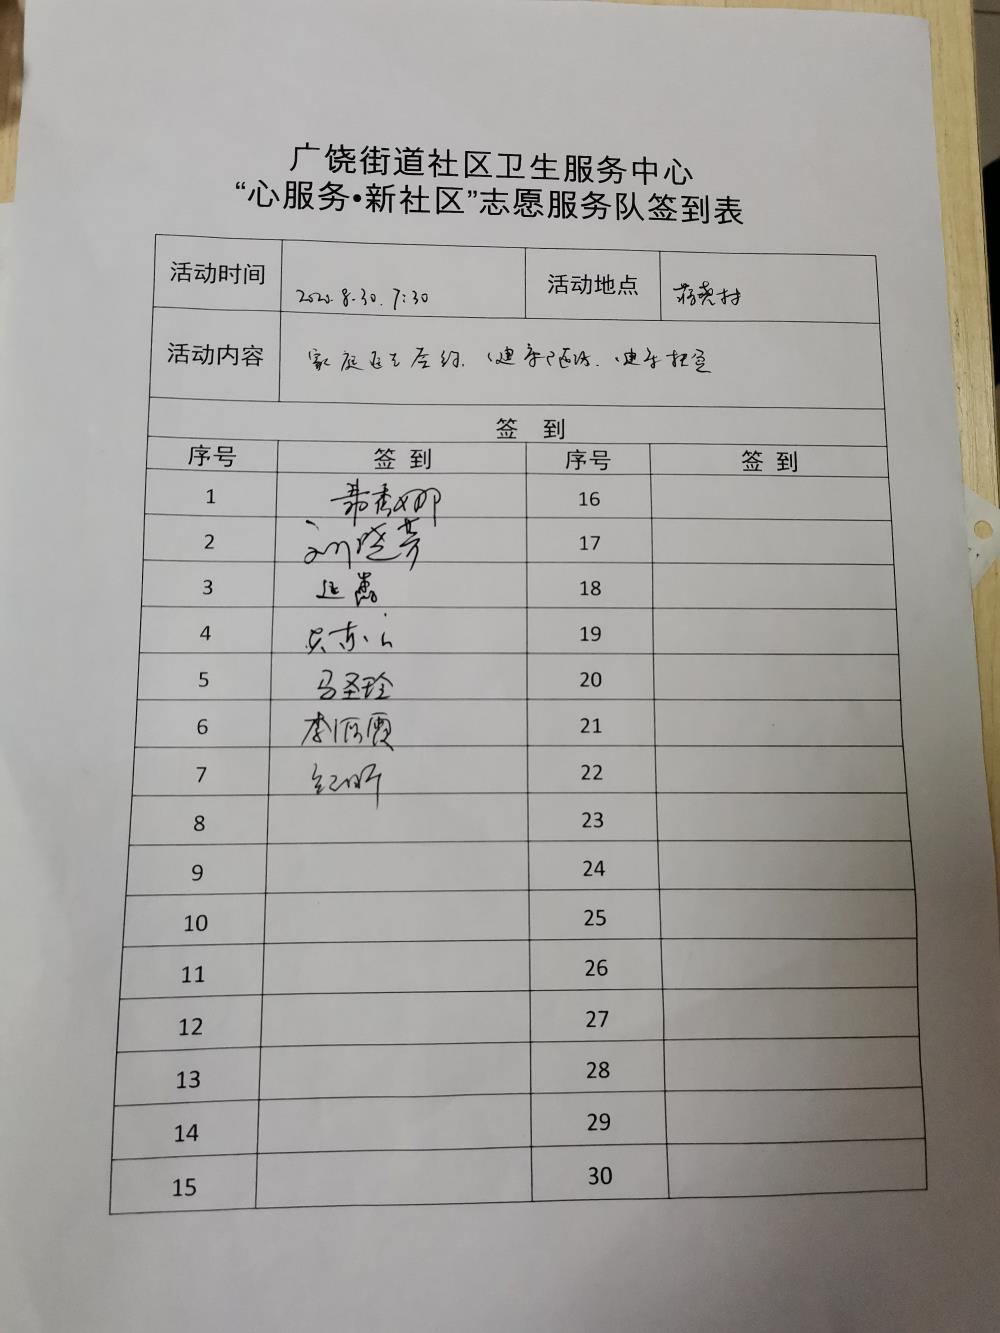 广饶街道社区卫生服务中心
“心服务•新社区”志愿服务队签到表
活动时间 2020.8.30. 7:30 活动地点 村
活动内容 家庭医生签约、健康、健康
签 到
序号 签 到 序号 签 到
1 秀娜 16
2 刘晓芳 17
3 18
4 19
5 马圣玲 20
6 李霞 21
7 纪昕 22
8 23
9 24
10 25
11 26
12 27
13 28
14 29
15 30